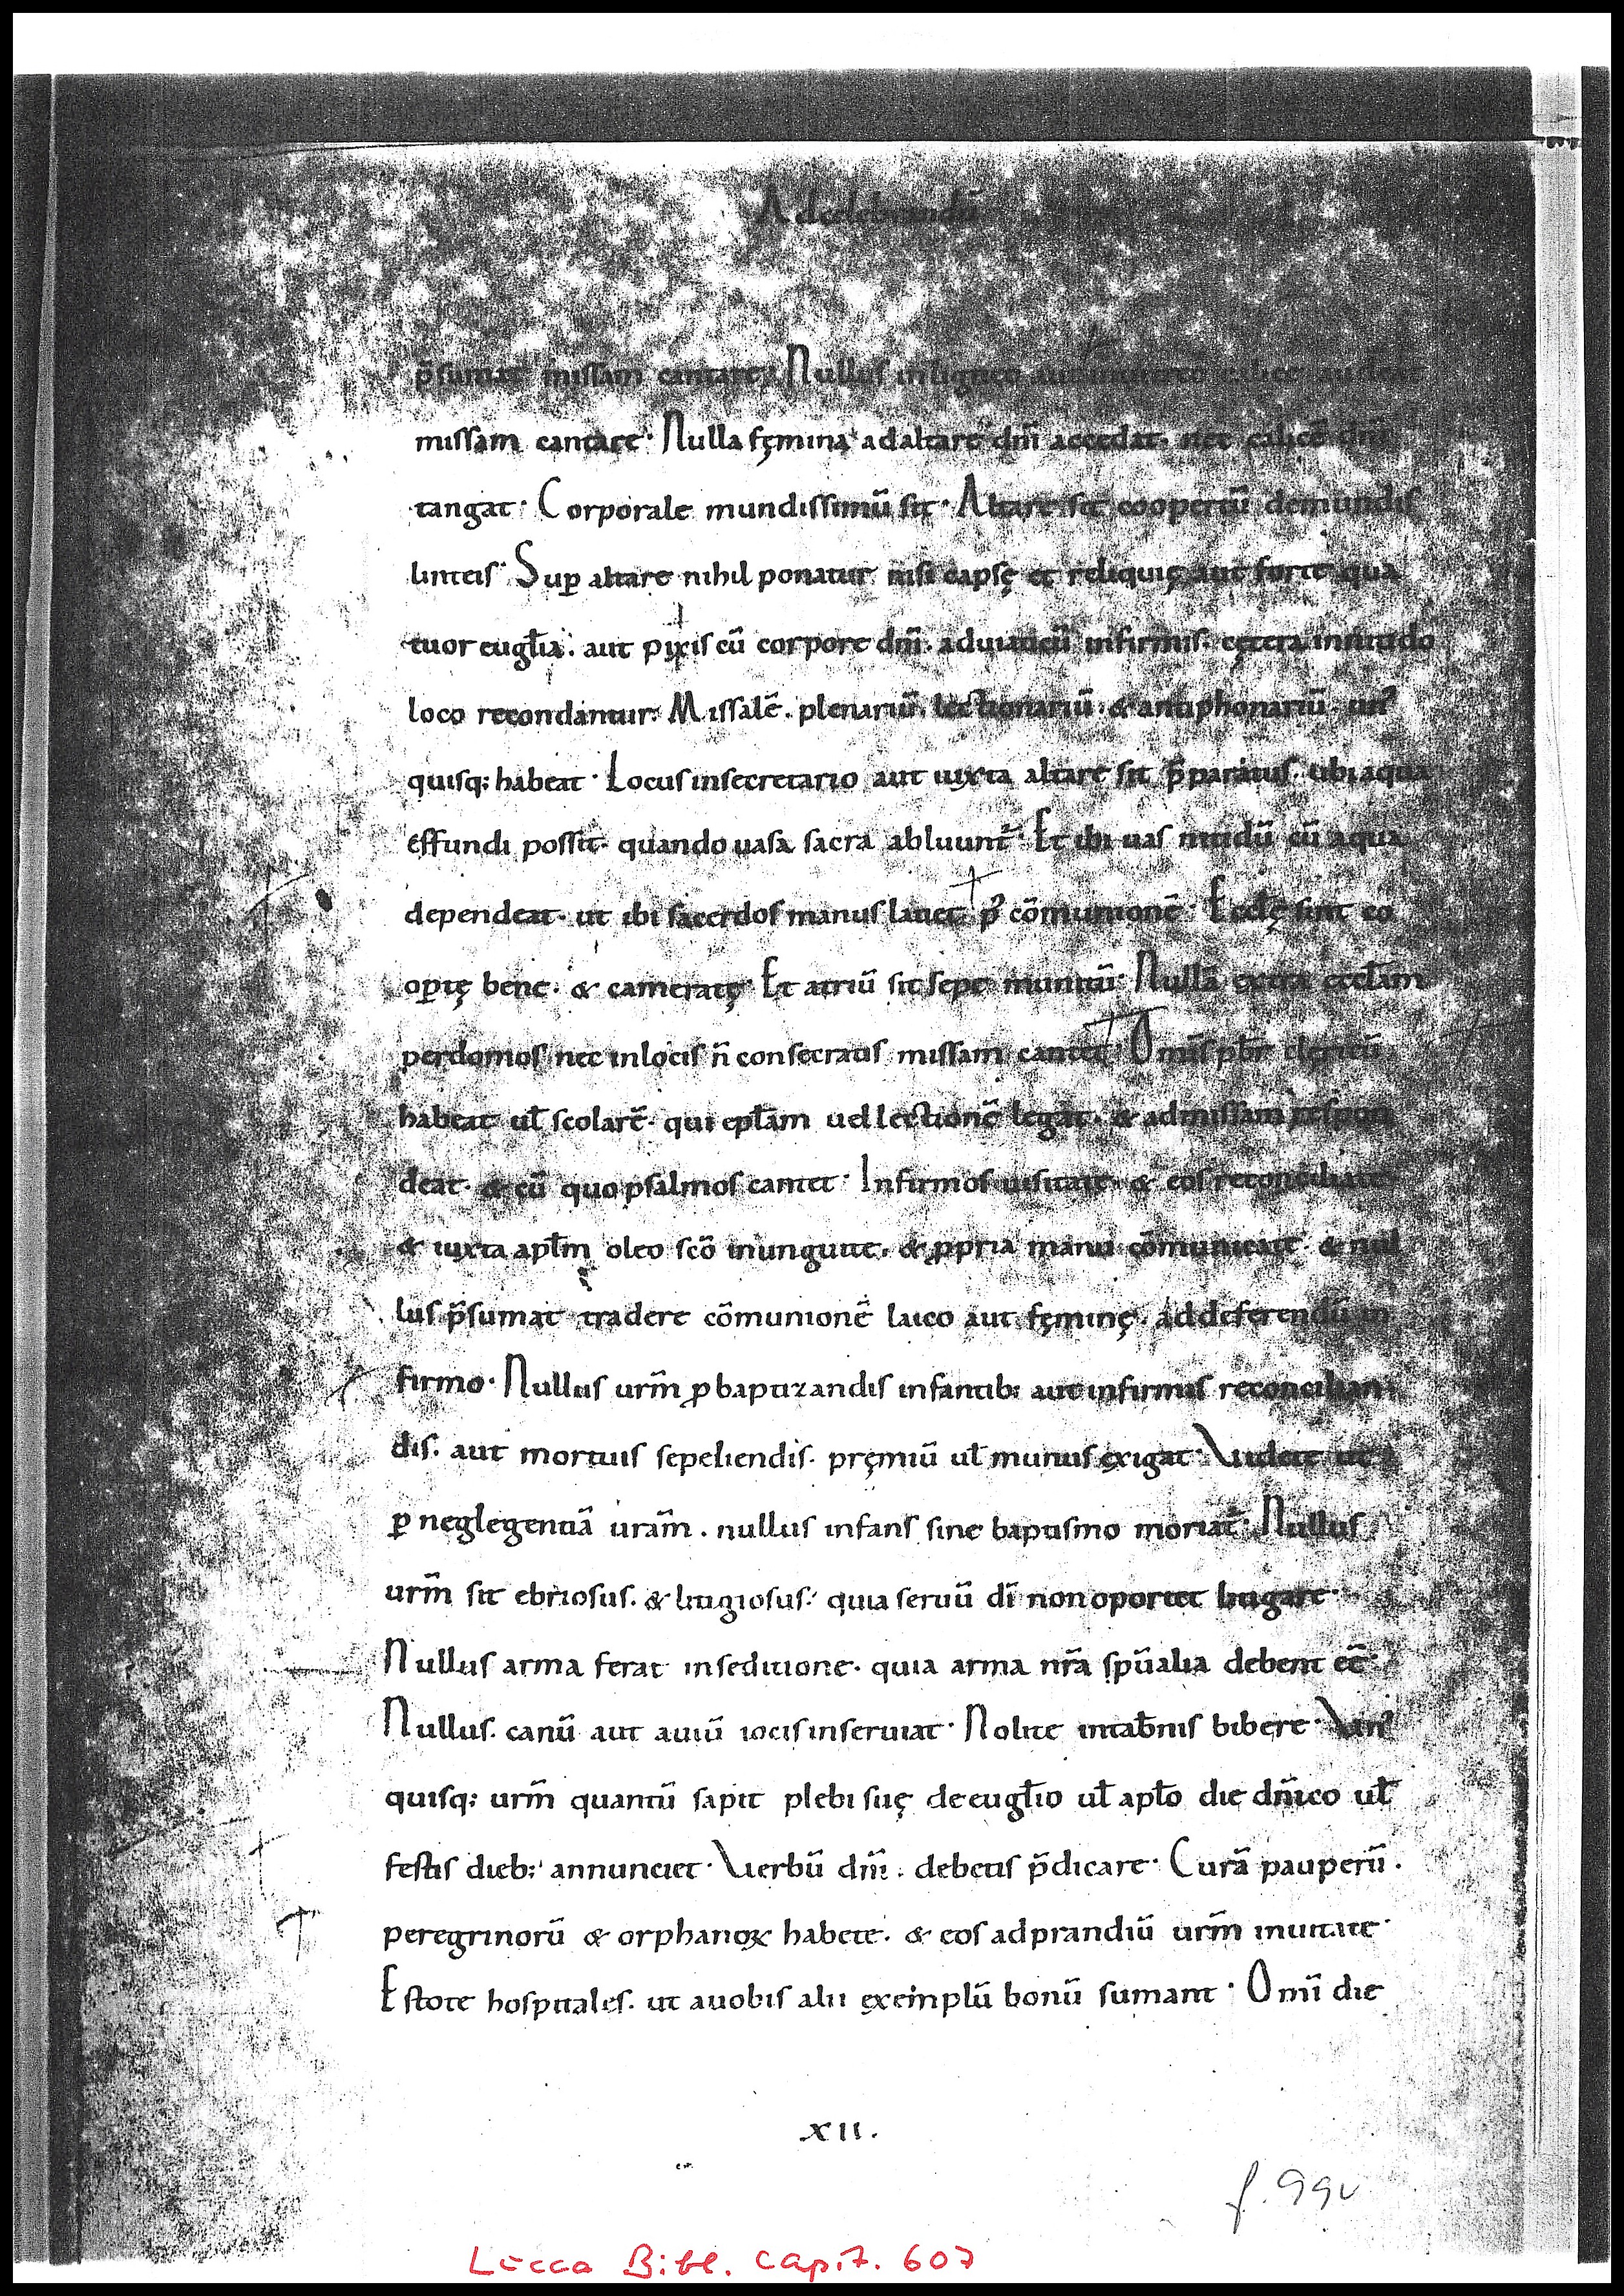 Adcelebrandū
p̄sumat missam cantare. Nullus inligneo aut uitreo calice audeat
missam cantare. Nulla fęmina adaltare dnī accedat. nec calicē dnī
tangat. Corporale mundissimū sit. Altare sit coopertū demundis
linteis. Suꝑ altare nihil ponatur nisi capsę et reliquię aut forte qua
tuor eugl̄ia. aut pixis cū corpore dnī. aduiaticū infirmis. cętera innitido
loco recondantur. Missalē. plenariū. lectionariū. & antiphonariū. un᾽
quisq; habeat. Locus insecretario aut iuxta altare sit p̄paratus. ubi aqua
effundi possit. quando uasa sacra abluunt᷑. Et ibi uas nitidū cū aqua
dependeat. ut ibi sacerdos manus lauet p᾽ cōmunionē. Eccl̄ę sint co
oꝑtę bene. & cameratę. Et atriū sit sepe munitū. Nullā extra eccl̄am
perdomos nec inlocis n̄ consecratis missam cantet. Omīs pbr̄ clericū
habeat ul̄ scolarē. qui epl̄am uel lectionē legat. & admissam respon
deat. & cū quo psalmos cantet. Infirmos uisitate. & eos reconciliate
& iuxta apl̄m oleo scō inunguite. & ꝓpria manu cōmunicate. & nul
lus p̄sumat tradere cōmunionē laico aut fęminę. addeferendū in
firmo. Nullus urm̄ ꝓ baptizandis infantib; aut infirmis reconcilian
dis. aut mortuis sepeliendis. pręmiū ul̄ munus exigat. Videte ut
ꝑ neglegentiā uram̄. nullus infans sine baptismo moriat᷑. Nullus
urm̄ sit ebriosus. & litigiosus. quia seruū dī non oportet litigare.
Nullus arma ferat inseditione. quia arma nrā spūalia debent eē.
Nullus. canū aut auiū iocis inseruiat. Nolite intab̄nis bibere. Vn᾽
quisq; urm̄ quantū sapit plebi suę de eugl̄io ul̄ apl̄o die dn̄ico ul̄
festis dieb; annunciet. Verbū dnī. debetis p̄dicare. Curā pauperū.
peregrinorū & orphanoꝝ habete. & eos adprandiū urm̄ inuitate.
Estote hospitales. ut auobis alii exemplū bonū sumant. Omī die
XII.
f. 99v
Lucca Bibl. Capit. 607